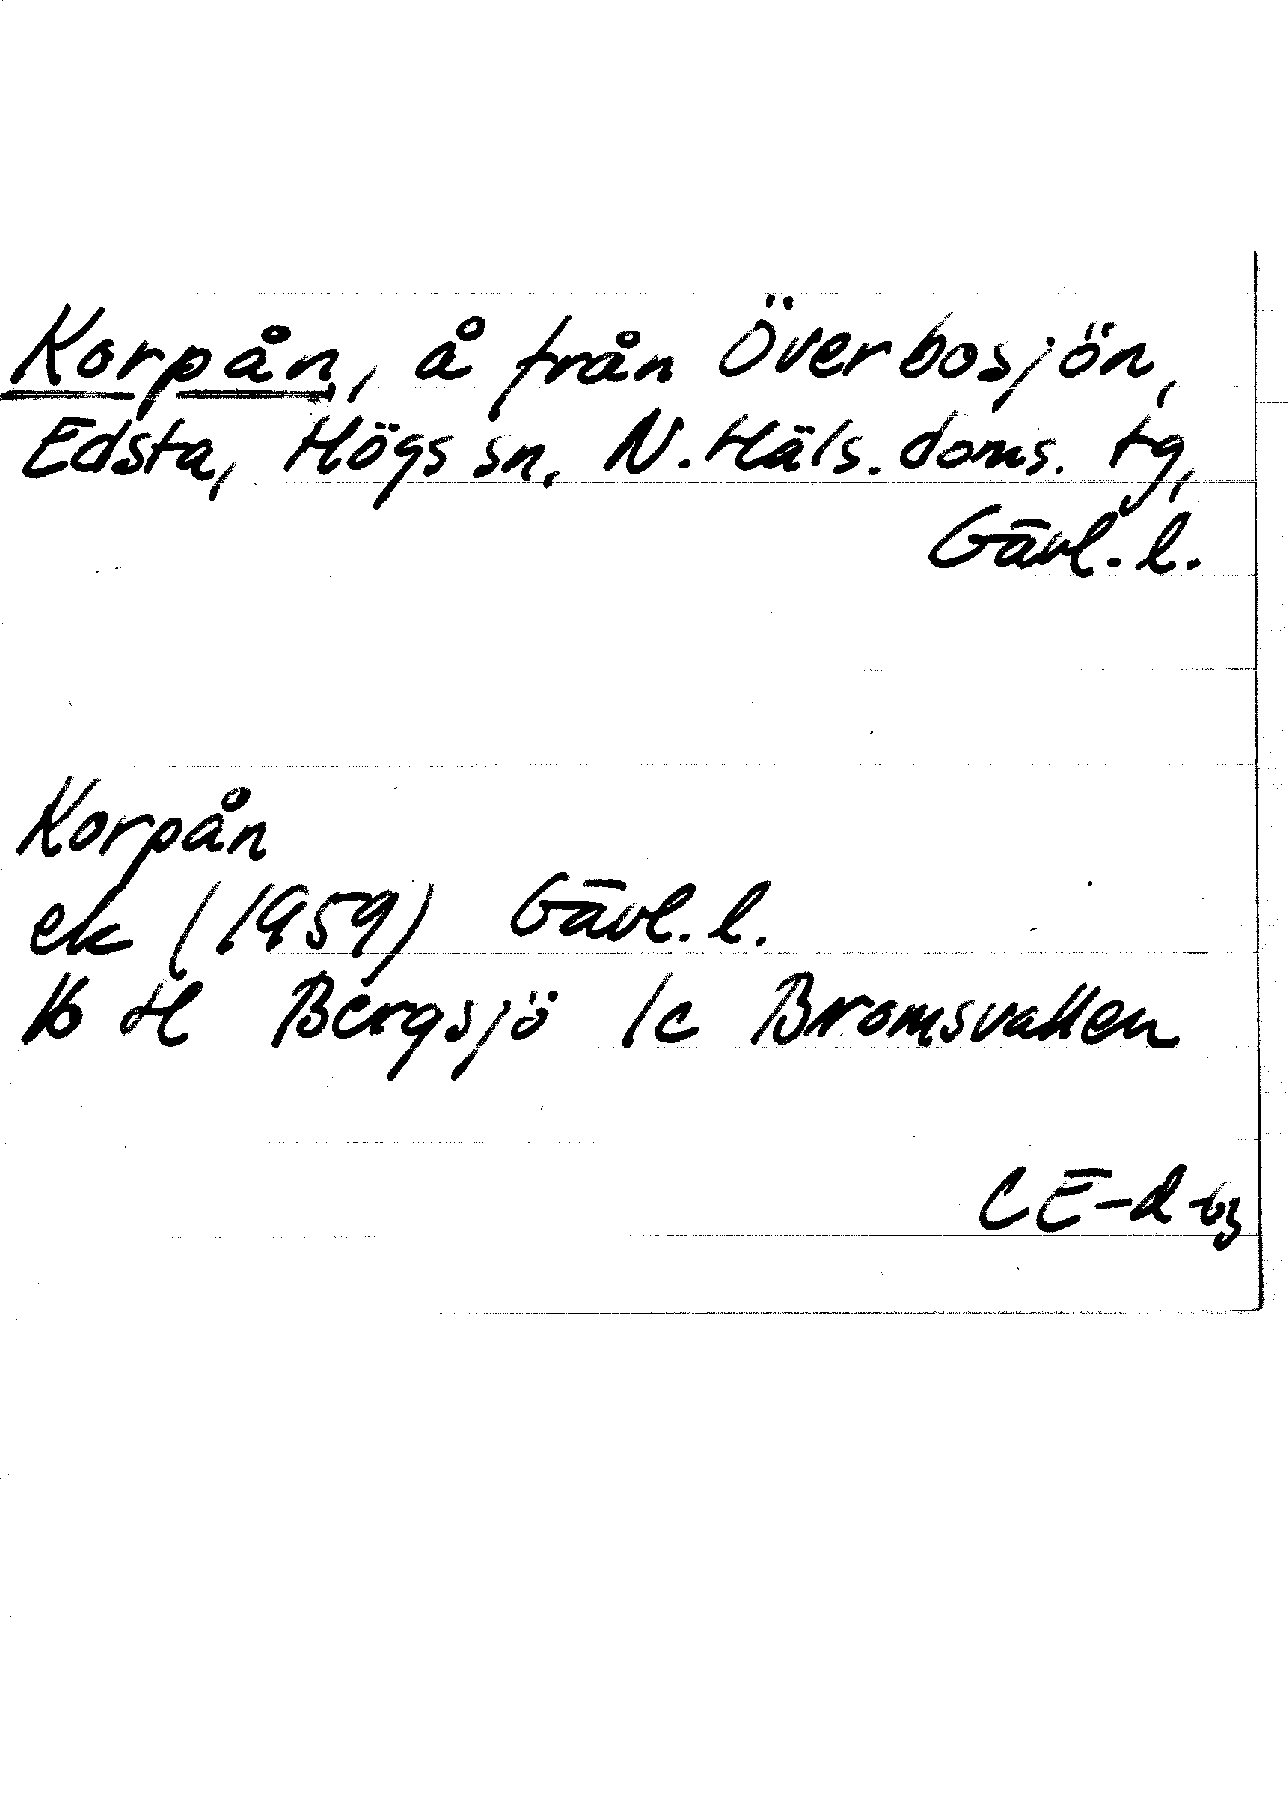 Korpån, å från Överbosjön,
Edsta, Högs sn, N. Häls. doms. tg,
Gävl. l.
Korpån
ek (1959) Gävl. l.
16 H Bergsjö 1c Bromsvallen
CE-d-b3